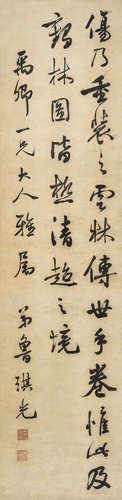 傷乃重裝之雲林傳世手卷惟此及
鶴林圖皆極清超之境
禹卿一兄大人雅屬
弟魯琪光